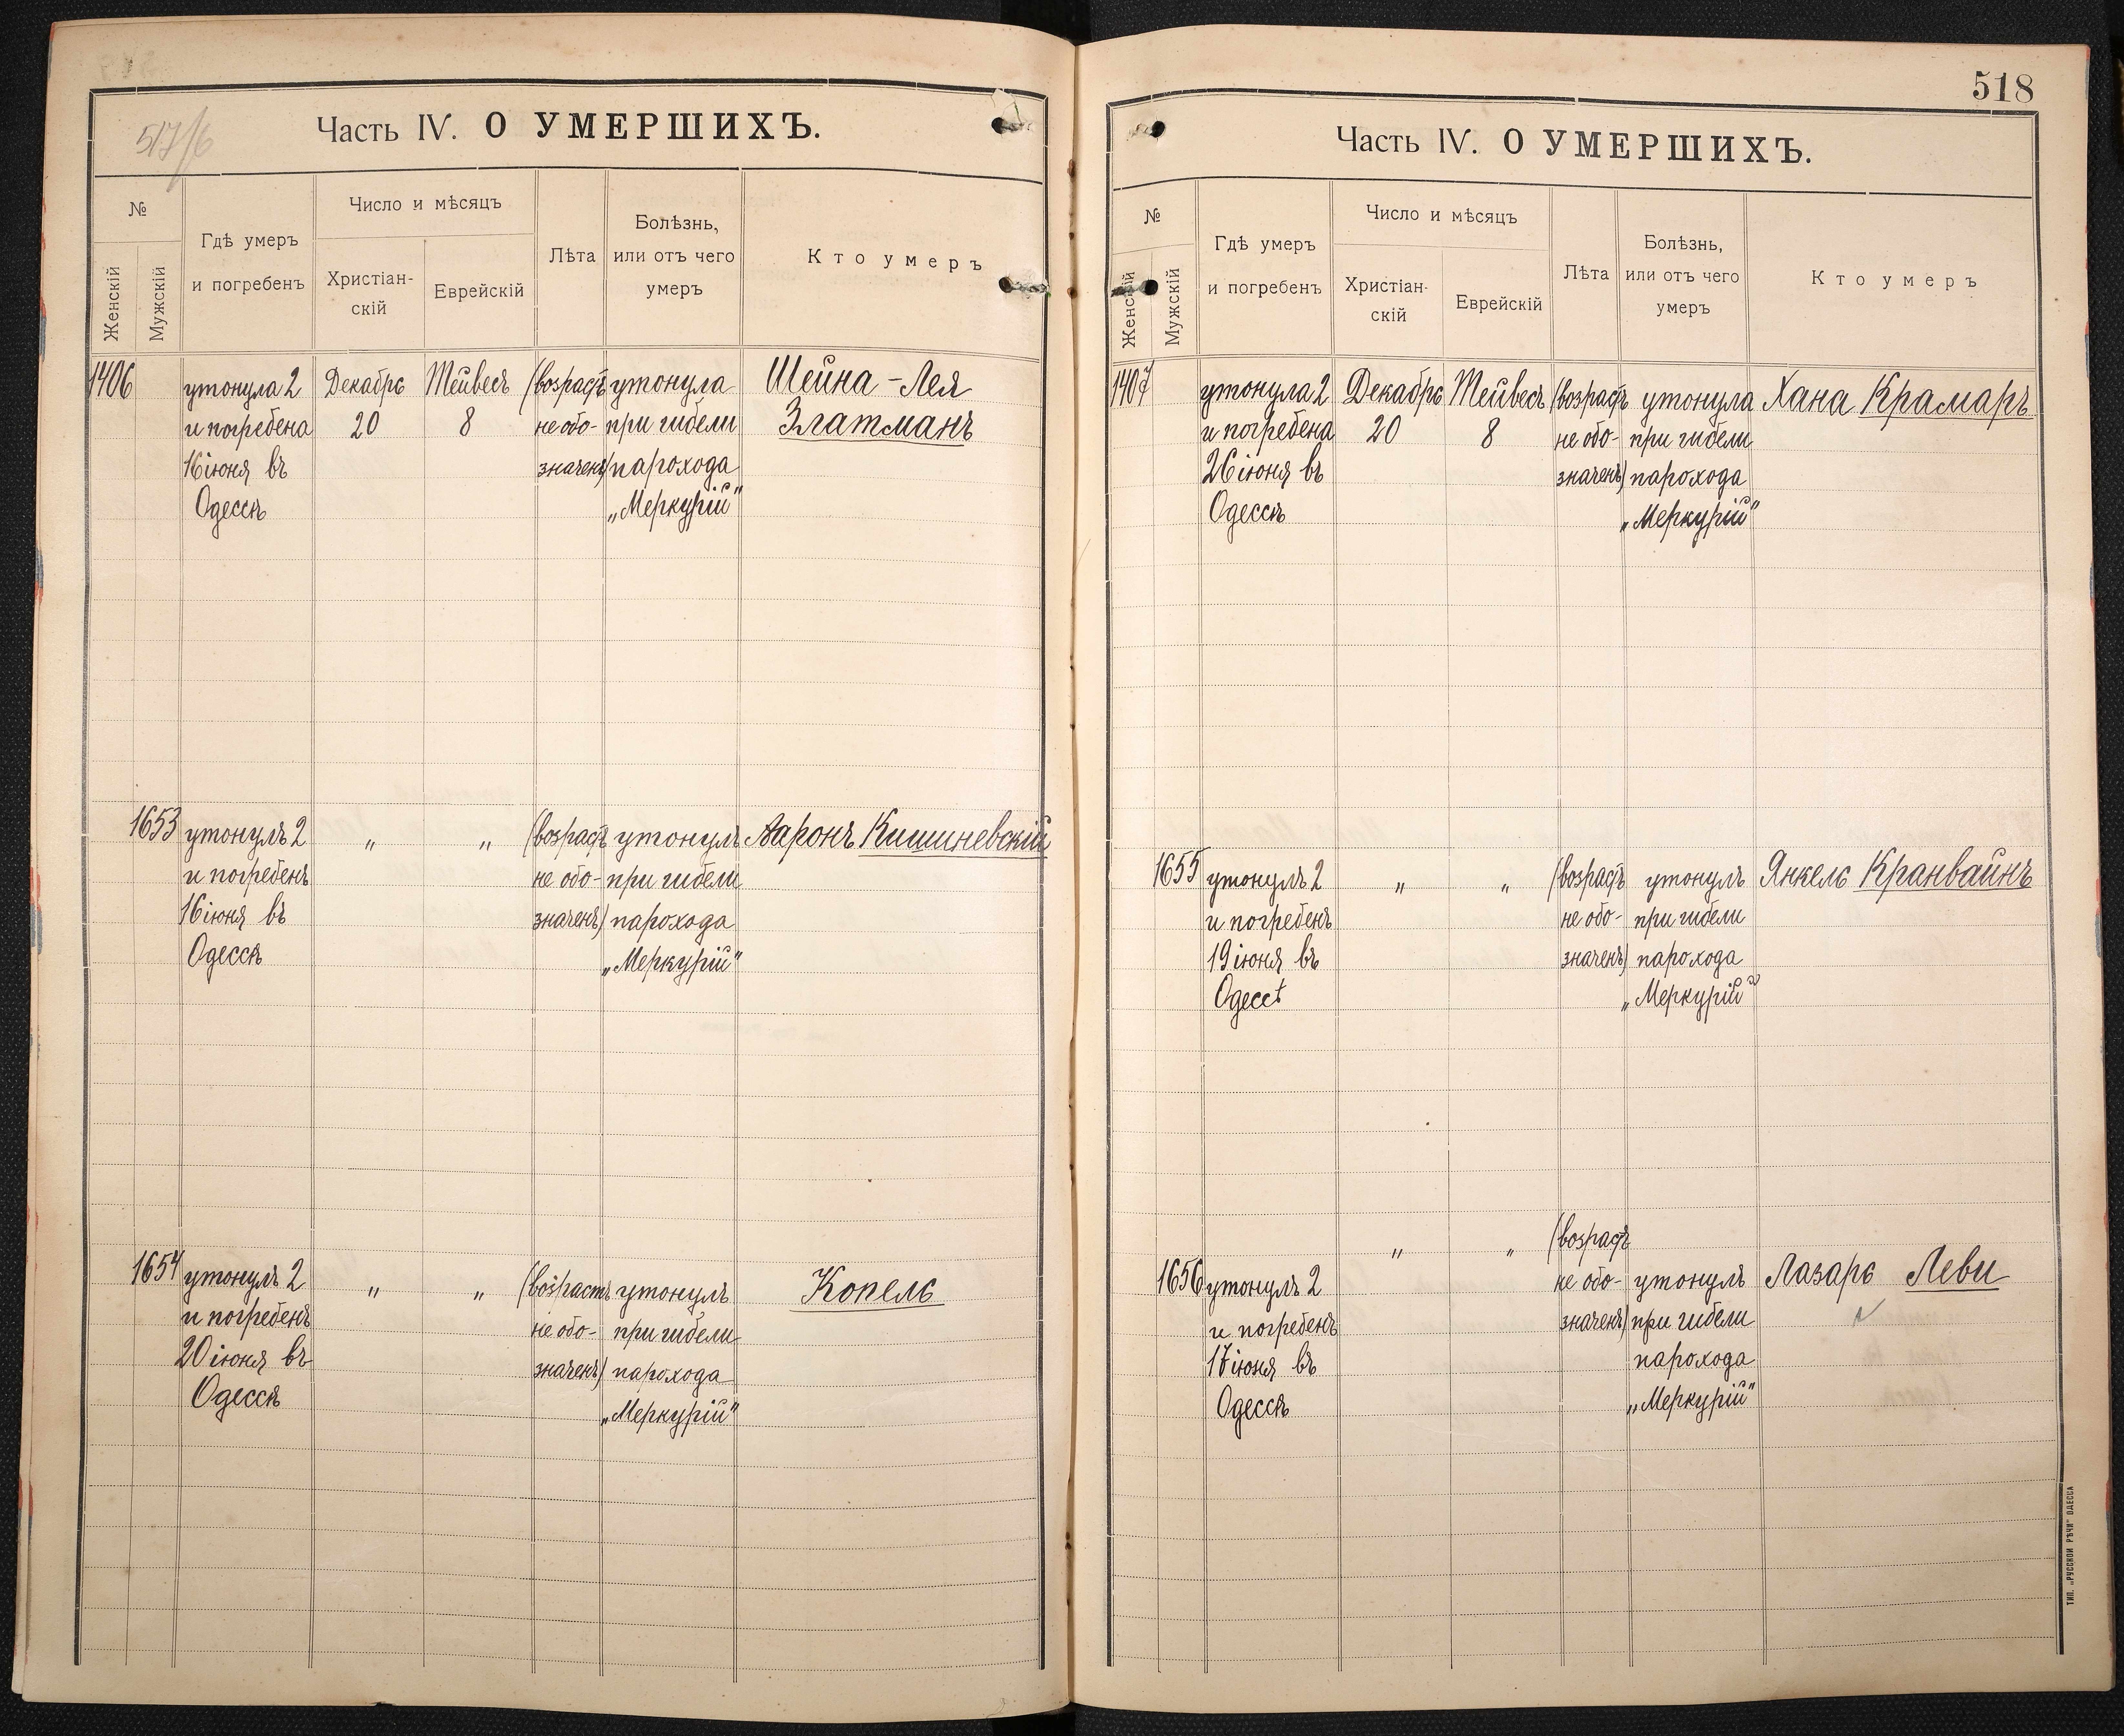 517/6
Часть IV. О УМЕРШИХЪ.
№
Женскій
Мужскій
Гдѣ умеръ
и погребенъ
Число и мѣсяцъ
Христіан-
скій
Еврейскій
Лѣта
Болѣзнь,
или отъ чего
умеръ
Кто умеръ
1406 утонула 2 Декабрь Тейвесъ (возрастъ утонула Шейна-Лея
и погребена 20 8 не обо- при гибели Златманъ
16 іюня въ значенъ) парохода
Одессѣ „Меркурій"
1653 утонулъ 2 " " (возрастъ утонулъ Ааронъ Кишиневскій
и погребенъ не обо- при гибели
16 іюня въ значенъ) парохода
Одессѣ „Меркурій"
1654 утонулъ 2 " " (возрастъ утонулъ Копель
и погребенъ не обо- при гибели
20 іюня въ значенъ) парохода
Одессѣ „Меркурій"
518
Часть IV. О УМЕРШИХЪ.
№
Женскій
Мужскій
Гдѣ умеръ
и погребенъ
Число и мѣсяцъ
Христіан-
скій
Еврейскій
Лѣта
Болѣзнь,
или отъ чего
умеръ
Кто умеръ
1407 утонула 2 Декабрь Тейвесъ (возрастъ утонула Хана Крамаръ
и погребена 20 8 не обо- при гибели
26 іюня въ значенъ) парохода
Одессѣ „Меркурій"
1655 утонулъ 2 " " (возрастъ утонулъ Янкель Кранвайнъ
и погребенъ не обо- при гибели
19 іюня въ значенъ) парохода
Одессѣ „Меркурій"
" " (возрастъ
1656 утонулъ 2 не обо- утонулъ Лазарь Леви
и погребенъ значенъ) при гибели
17 іюня въ парохода
Одессѣ „Меркурій"
ТИП. „РУССКОЙ РѢЧИ" ОДЕССА